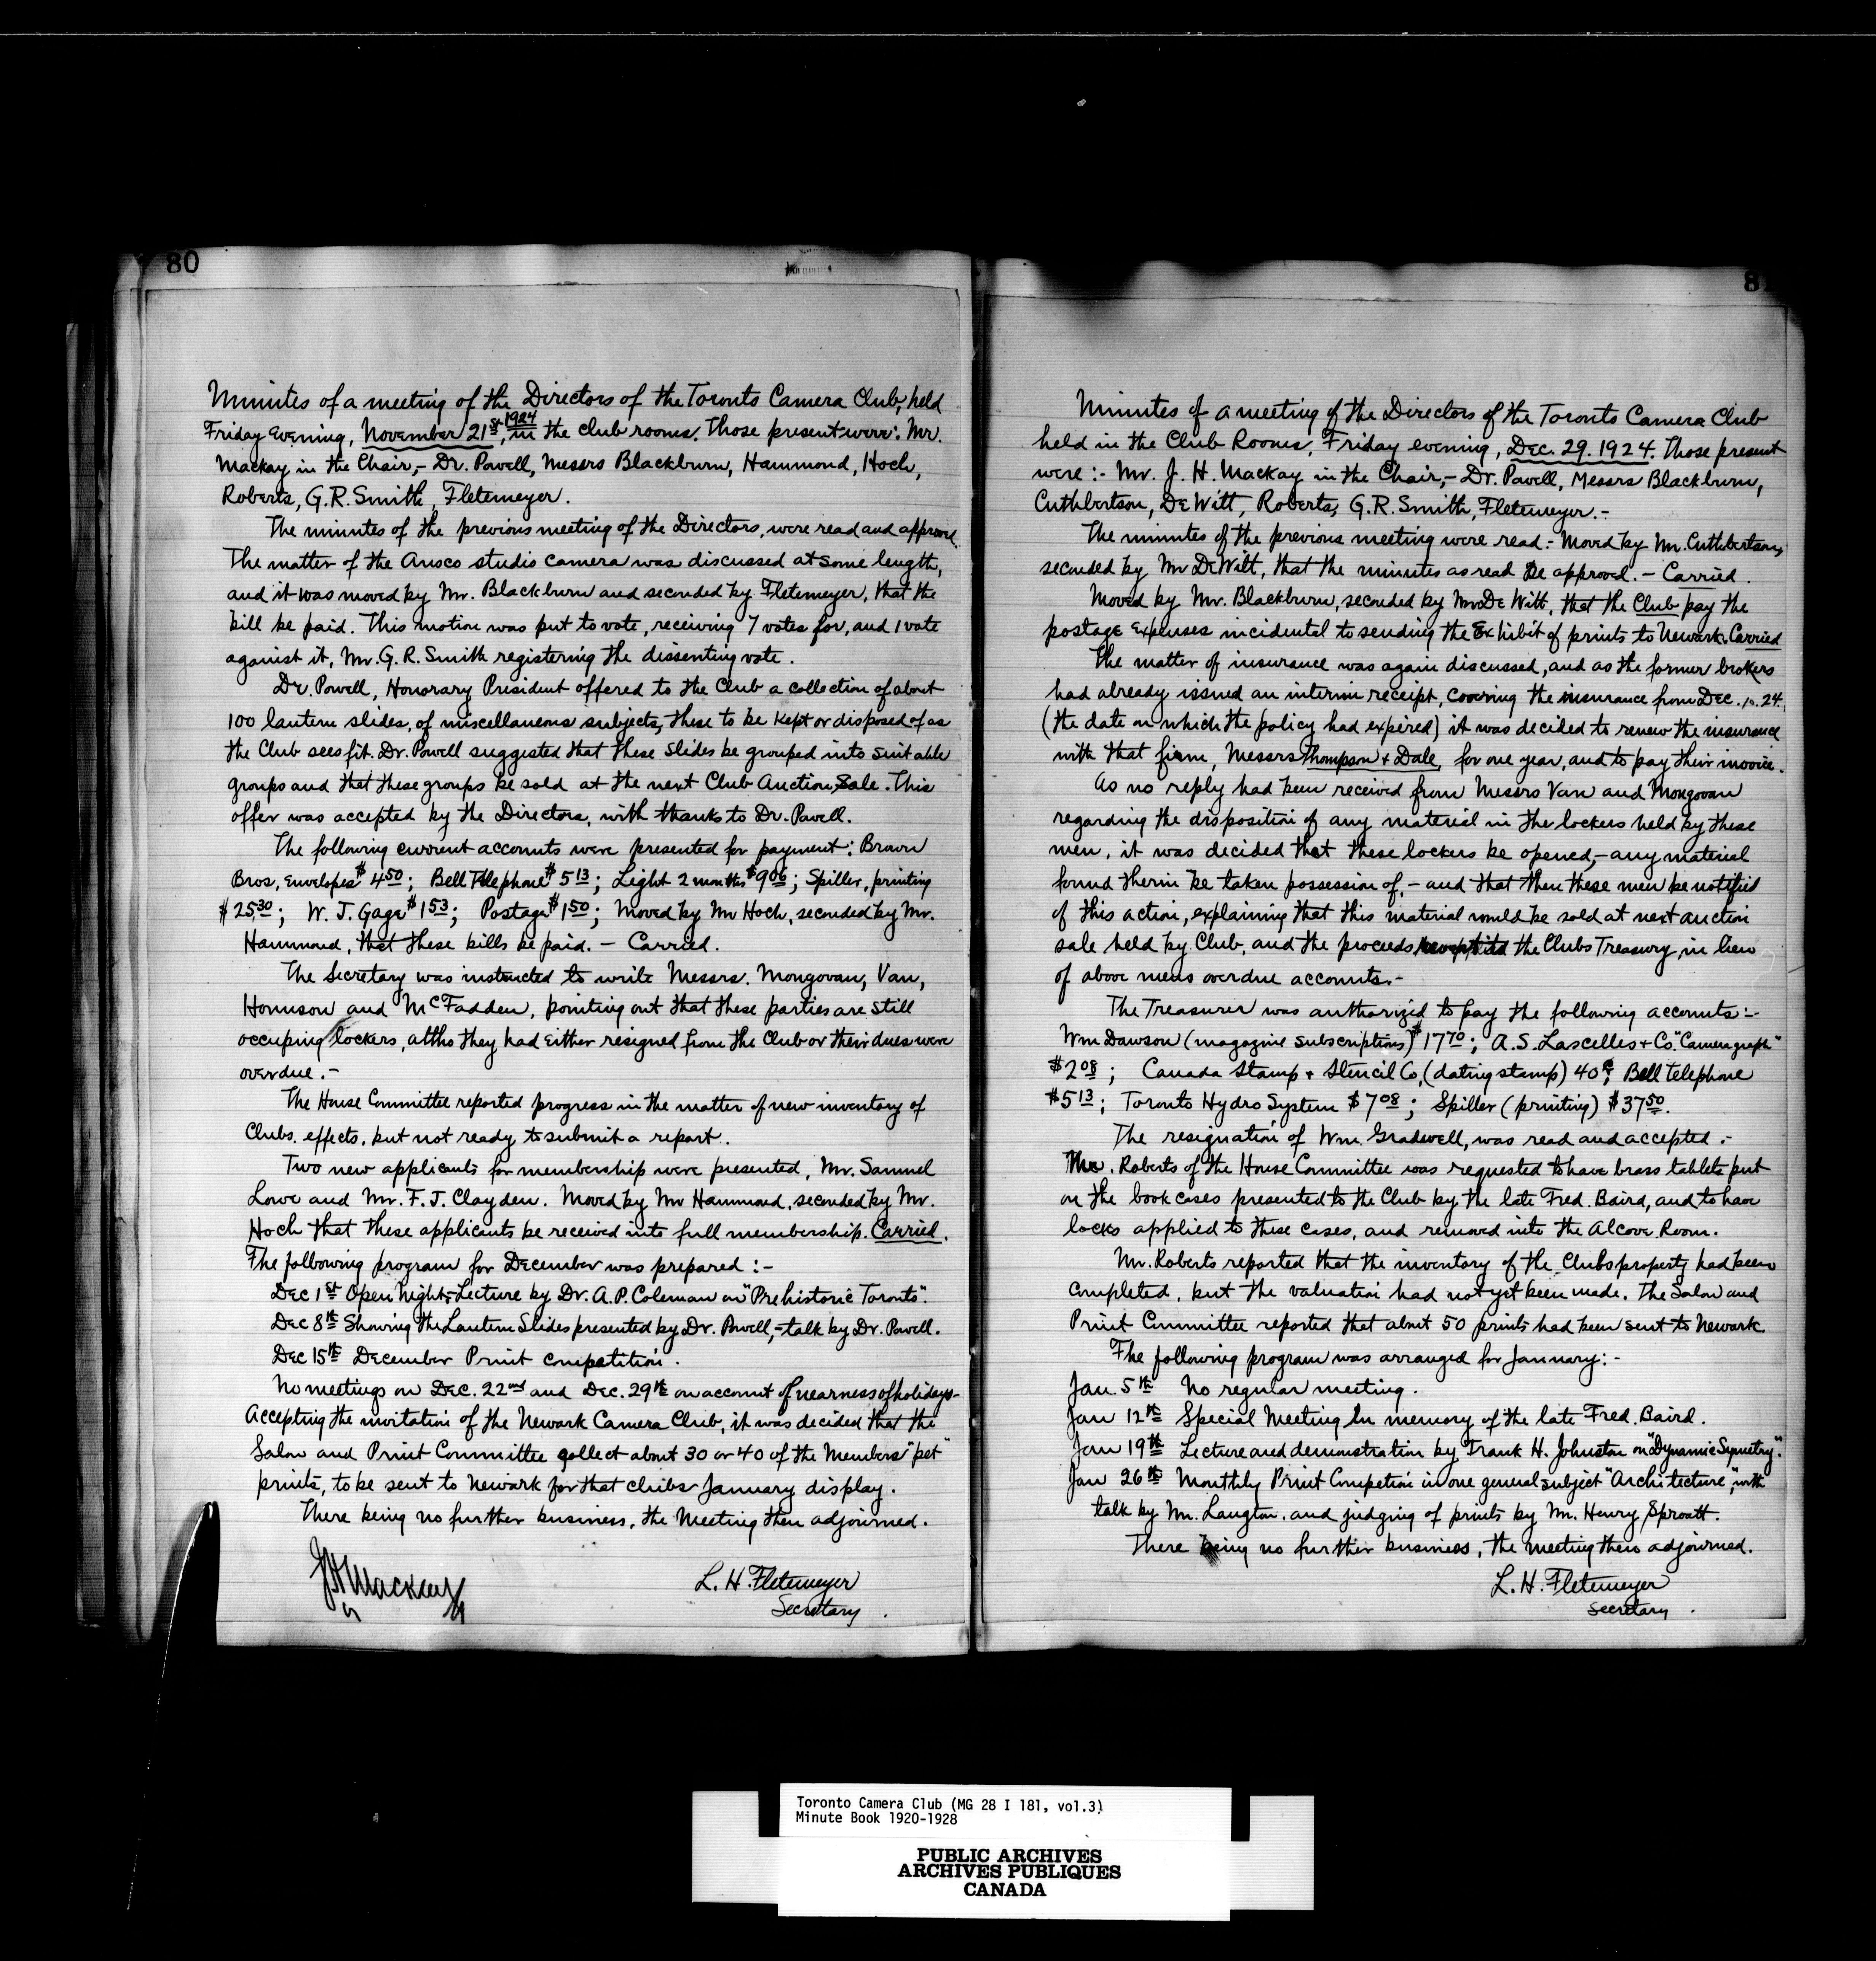 80
Minutes of a meeting of the Directors of the Toronto Camera Club, held
Friday Evening, November 21st, 1924 in the club rooms. Those present were: Mr.
Mackay in the Chair,- Dr. Powell, Messrs Blackburn, Hammond, Hoch,
Roberts, G.R. Smith, Fletemeyer.
The minutes of the previous meeting of the Directors, were read and approved.
The matter of the Ansco studio camera was discussed at some length,
and it was moved by Mr. Blackburn and seconded by Fletemeyer, that the
bill be paid. This motion was put to vote, receiving 7 votes for, and 1 vote
against it, Mr. G. R. Smith registering the dissenting vote.
Dr. Powell, Honorary President offered to the Club a collection of about
100 lantern slides, of miscellaneous subjects, these to be kept or disposed of as
the Club sees fit. Dr. Powell suggested that these slides be grouped into suitable
groups and that these groups be sold at the next Club Auction Sale. This
offer was accepted by the Directors, with thanks to Dr. Powell.
The following current accounts were presented for payment: Brown
Bros, Envelopes $4.50; Bell Telephone $5.13; Light 2 months $9.06; Spiller, printing
$25.30; W. J. Gage $1.53; Postage $1.50; Moved by Mr Hoch, seconded by Mr.
Hammond, that these bills be paid. - Carried.
The Secretary was instructed to write Messrs. Mongovan, Van,
Homson and McFadden, pointing out that these parties are still
occuping lockers, altho they had Either resigned from the Club or their dues were
overdue.-
The House Committee reported progress in the matter of new inventory of
Clubs. effects, but not ready to submit a report.
Two new applicants for membership were presented, Mr. Samuel
Lowe and Mr. F. J. Clayden. Moved by Mr Hammond, seconded by Mr.
Hoch that these applicants be received into full membership. Carried.
The following program for December was prepared :-
Dec 1st Open Night, Lecture by Dr. A.P. Coleman on "Prehistoric Toronto".
Dec 8th Showing the Lantern Slides presented by Dr. Powell,- talk by Dr. Powell.
Dec 15th December Print competition.
No meetings on Dec. 22nd and Dec. 29th on account of nearness of holidays-
Accepting the invitation of the Newark Camera Club, it was decided that the
Salon and Print Committee collect about 30 or 40 of the Members "pet"
prints, to be sent to Newark for that clubs January display.
There being no further business, the Meeting then adjourned.
JH Mackay
L. H. Fletemeyer
Secretary.
8
Minutes of a meeting of the Directors of the Toronto Camera Club
held in the Club Rooms, Friday evening, Dec. 29. 1924. Those present
were :- Mr. J. H. Mackay in the Chair,- Dr. Powell, Messrs Blackburn,
Cuthbertson, DeWitt, Roberts, G.R. Smith, Fletemeyer.-
The minutes of the previous meeting were read:- Moved by Mr. Cuthbertson,
seconded by Mr DeWitt, that the minutes as read be approved. - Carried.
Moved by Mr. Blackburn, seconded by Mr DeWitt, that the Club pay the
postage Expenses incidental to sending the Exhibit of prints to Newark. Carried
The matter of insurance was again discussed, and as the former brokers
had already issued an interim receipt, covering the insurance from Dec. 10. 24.
(the date on which the policy had expired) it was decided to renew the insurance
with that firm, Messrs Thompson + Dale, for one year, and to pay their invoice.
As no reply had been received from Messrs Van and Mongovan
regarding the disposition of any material in the lockers held by these
men, it was decided that these lockers be opened,- any material
found therin be taken possession of,- and that then these men be notified
of this action, explaining that this material would be sold at next auction
sale held by Club, and the proceeds the Clubs Treasury, in lieu
of above mens overdue accounts.-
The Treasurer was authorized to pay the following accounts:-
Wm Dawson (magazine subscriptions) $17.70; A.S. Lascelles + Co. "Cameragraph"
$2.08; Canada Stamp + Stencil Co, (dating stamp) 40¢; Bell Telephone
$5.13; Toronto Hydro System $7.08; Spiller (printing) $37.50.
The resignation of Wm. Gradwell, was read and accepted.-
Mr. Roberts of the House Committee was requested to have brass tablets put
on the book cases presented to the Club by the late Fred. Baird, and to have
locks applied to these cases, and removed into the Alcove Room.
Mr. Roberts reported that the inventory of the Clubs property had been
completed, but the valuation had not yet been made. The Salon and
Print Committee reported that about 50 prints had been sent to Newark.
The following program was arranged for January:-
Jan. 5th No regular meeting.
Jan 12th Special Meeting In memory of the late Fred. Baird.
Jan 19th Lecture and demonstration by Frank H. Johnston on "Dynamic Symetry".
Jan 26th Monthly Print Competion in one general subject "Architecture", with
talk by Mr. Langton, and judging of prints by Mr. Henry Sproatt.
There being no further business, the meeting then adjourned.
L. H. Fletemeyer
Secretary.
Toronto Camera Club (MG 28 I 181, vol.3)
Minute Book 1920-1928
PUBLIC ARCHIVES
ARCHIVES PUBLIQUES
CANADA